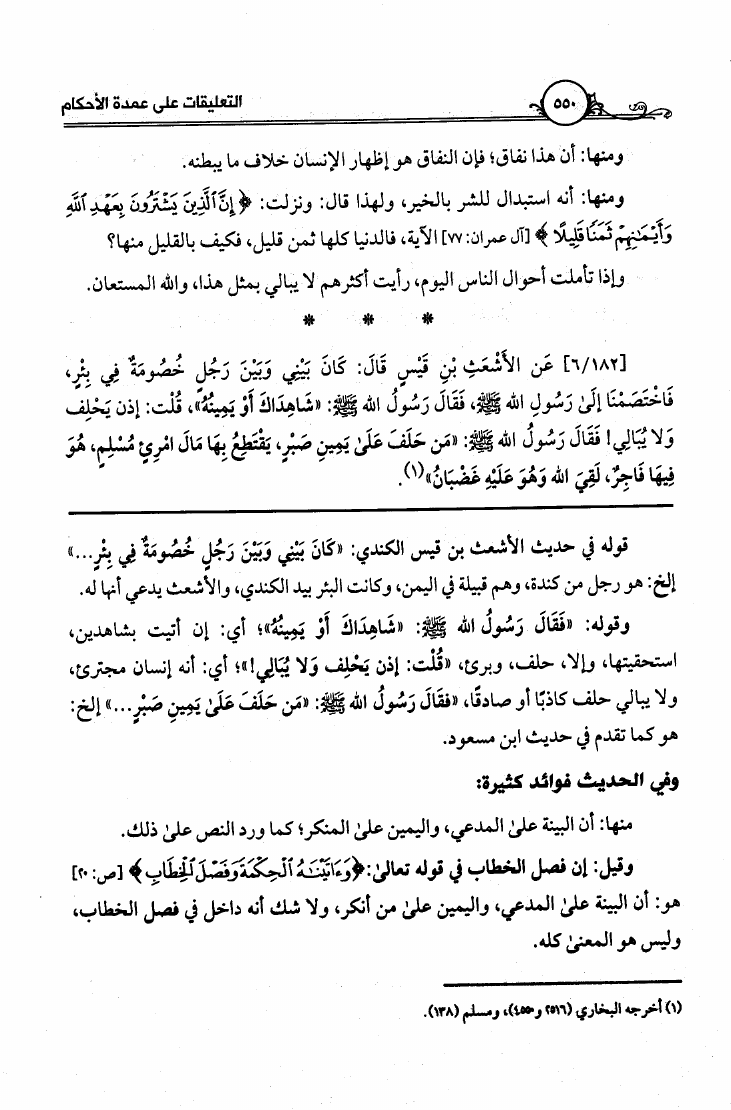 التعليقات على عمدة الأحكام
٥٥٠
ومنها: أن هذا نفاق؛ فإن النفاق هو إظهار الإنسان خلاف ما يبطنه.
ومنها: أنه استبدال للشر بالخير، ولهذا قال: ونزلت: ﴿إِنَّ ٱلَّذِينَ يَشْتَرُونَ بِعَهْدِ ٱللَّهِ
وَأَيْمَٰنِهِمْ ثَمَنًا قَلِيلًا﴾ [آل عمران: ٧٧] الآية، فالدنيا كلها ثمن قليل، فكيف بالقليل منها؟
وإذا تأملت أحوال الناس اليوم، رأيت أكثرهم لا يبالي بمثل هذا، والله المستعان.
* * *
[٦/١٨٢] عَنِ الأَشْعَثِ بْنِ قَيْسٍ قَالَ: كَانَ بَيْنِي وَبَيْنَ رَجُلٍ خُصُومَةٌ فِي بِئْرٍ،
فَاخْتَصَمْنَا إِلَىٰ رَسُولِ الله ﷺ، فَقَالَ رَسُولُ الله ﷺ: «شَاهِدَاكَ أَوْ يَمِينُهُ»، قُلْت: إذن يَحْلِف
وَلا يُبَالِي! فَقَالَ رَسُولُ الله ﷺ: «مَن حَلَفَ عَلَىٰ يَمِينِ صَبْرٍ، يَقْتَطِعُ بِهَا مَالَ امْرِئٍ مُسْلِمٍ، هُوَ
فِيهَا فَاجِرٌ، لَقِيَ الله وَهُوَ عَلَيْهِ غَضْبَانُ»(١).
قوله في حديث الأشعث بن قيس الكندي: «كَانَ بَيْنِي وَبَيْنَ رَجُلٍ خُصُومَةٌ فِي بِئْرٍ...»
إلخ: هو رجل من كندة، وهم قبيلة في اليمن، وكانت البئر بيد الكندي، والأشعث يدعي أنها له.
وقوله: «فَقَالَ رَسُولُ الله ﷺ: «شَاهِدَاكَ أَوْ يَمِينُهُ»؛ أي: إن أتيت بشاهدين،
استحقيتها، وإلا، حلف، وبرئ، «قُلْت: إذن يَحْلِف وَلا يُبَالِي!»؛ أي: أنه إنسان مجترئ،
ولا يبالي حلف كاذبًا أو صادقًا، «فقَالَ رَسُولُ الله ﷺ: «مَن حَلَفَ عَلَىٰ يَمِينِ صَبْرٍ...» إلخ:
هو كما تقدم في حديث ابن مسعود.
وفي الحديث فوائد كثيرة:
منها: أن البينة علىٰ المدعي، واليمين علىٰ المنكر؛ كما ورد النص علىٰ ذلك.
وقيل: إن فصل الخطاب في قوله تعالىٰ: ﴿وَءَاتَيْنَٰهُ ٱلْحِكْمَةَ وَفَصْلَ ٱلْخِطَابِ﴾ [ص: ٢٠]
هو: أن البينة علىٰ المدعي، واليمين علىٰ من أنكر، ولا شك أنه داخل في فصل الخطاب،
وليس هو المعنىٰ كله.
(١) أخرجه البخاري (٢٥١٦ و٤٥٥٠)، ومسلم (١٣٨).